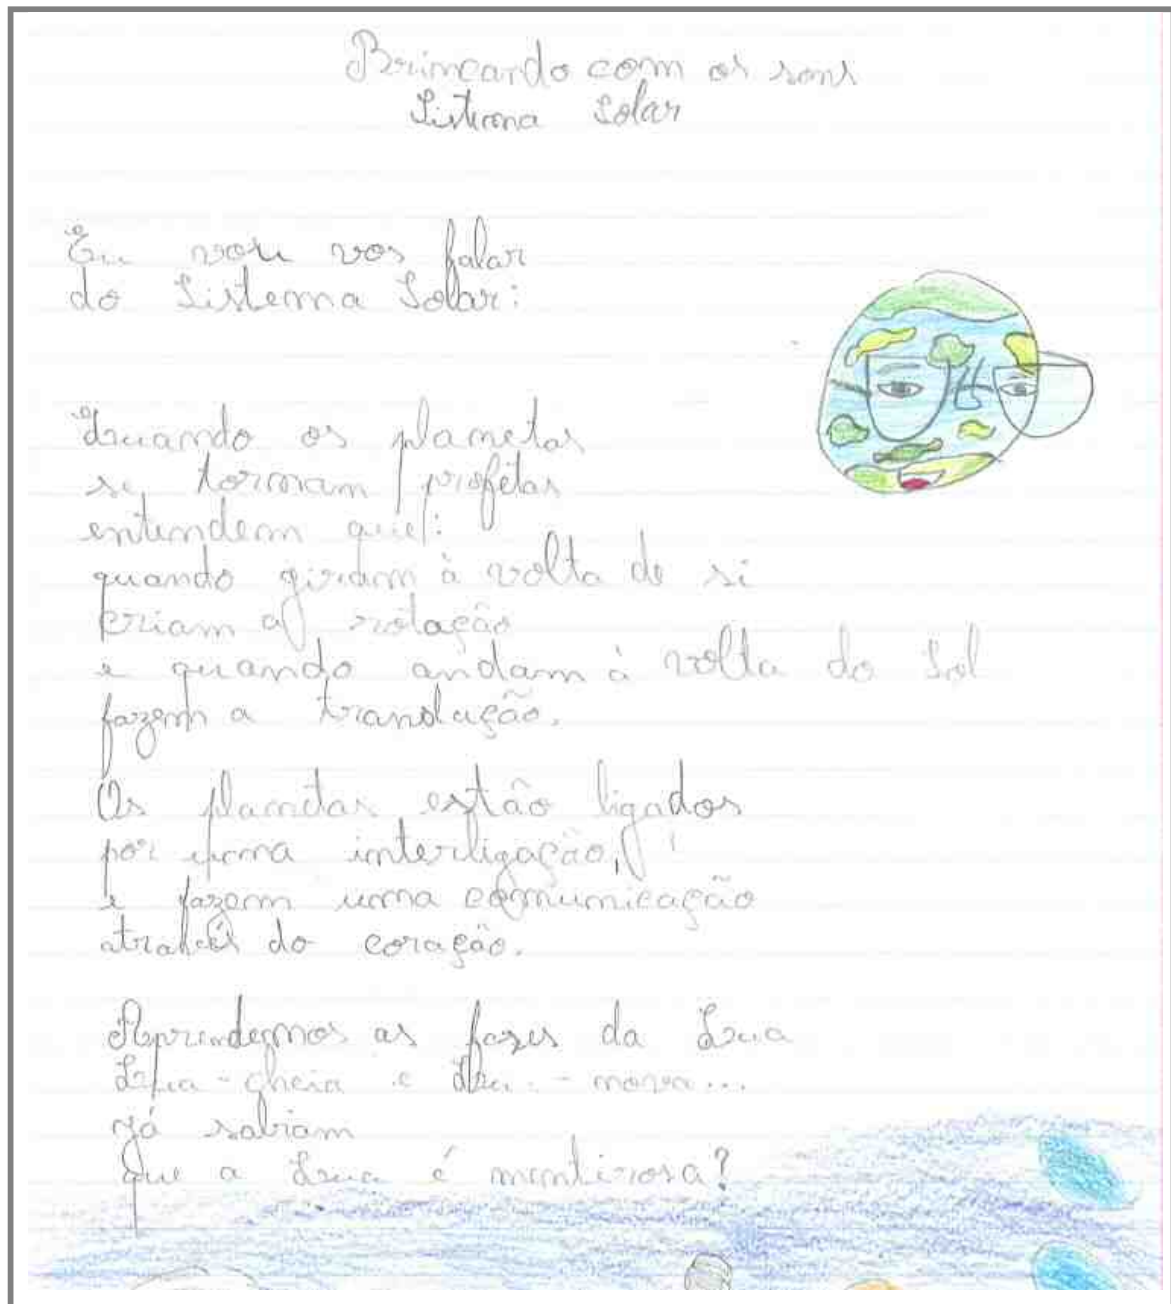 Brincando com os sons
Sistema Solar
Eu vou vos falar
do Sistema Solar:
Quando os planetas
se tornam profetas
entendem que:
quando giram à volta de si
criam a rotação
e quando andam à volta do Sol
fazem a translação.
Os planetas estão ligados
por uma interligação,
e fazem uma comunicação
através do coração.
Aprendemos as fases da Lua
Lua-cheia e Lua-nova...
Já sabiam
que a Lua é mentirosa?